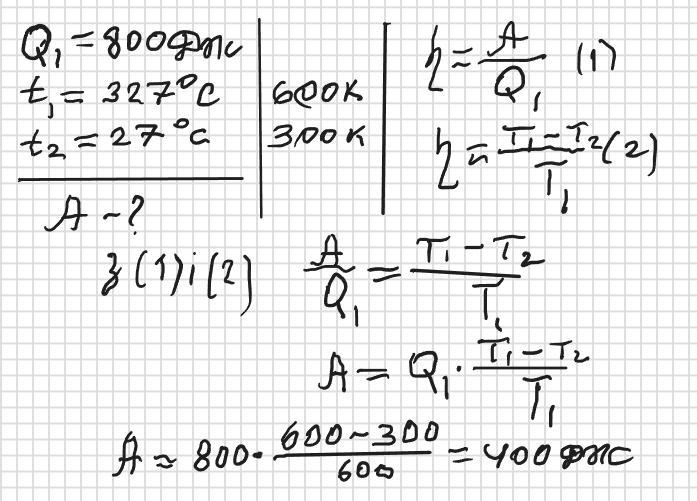 Q₁ = 800 Дж
t₁ = 327°C 600 К
t₂ = 27°C 300 К
A - ?
η = A/Q₁ (1)
η = (T₁ - T₂)/T₁ (2)
з (1) і (2) A/Q₁ = (T₁ - T₂)/T₁
A = Q₁ · (T₁ - T₂)/T₁
A = 800 · (600 - 300)/600 = 400 Дж